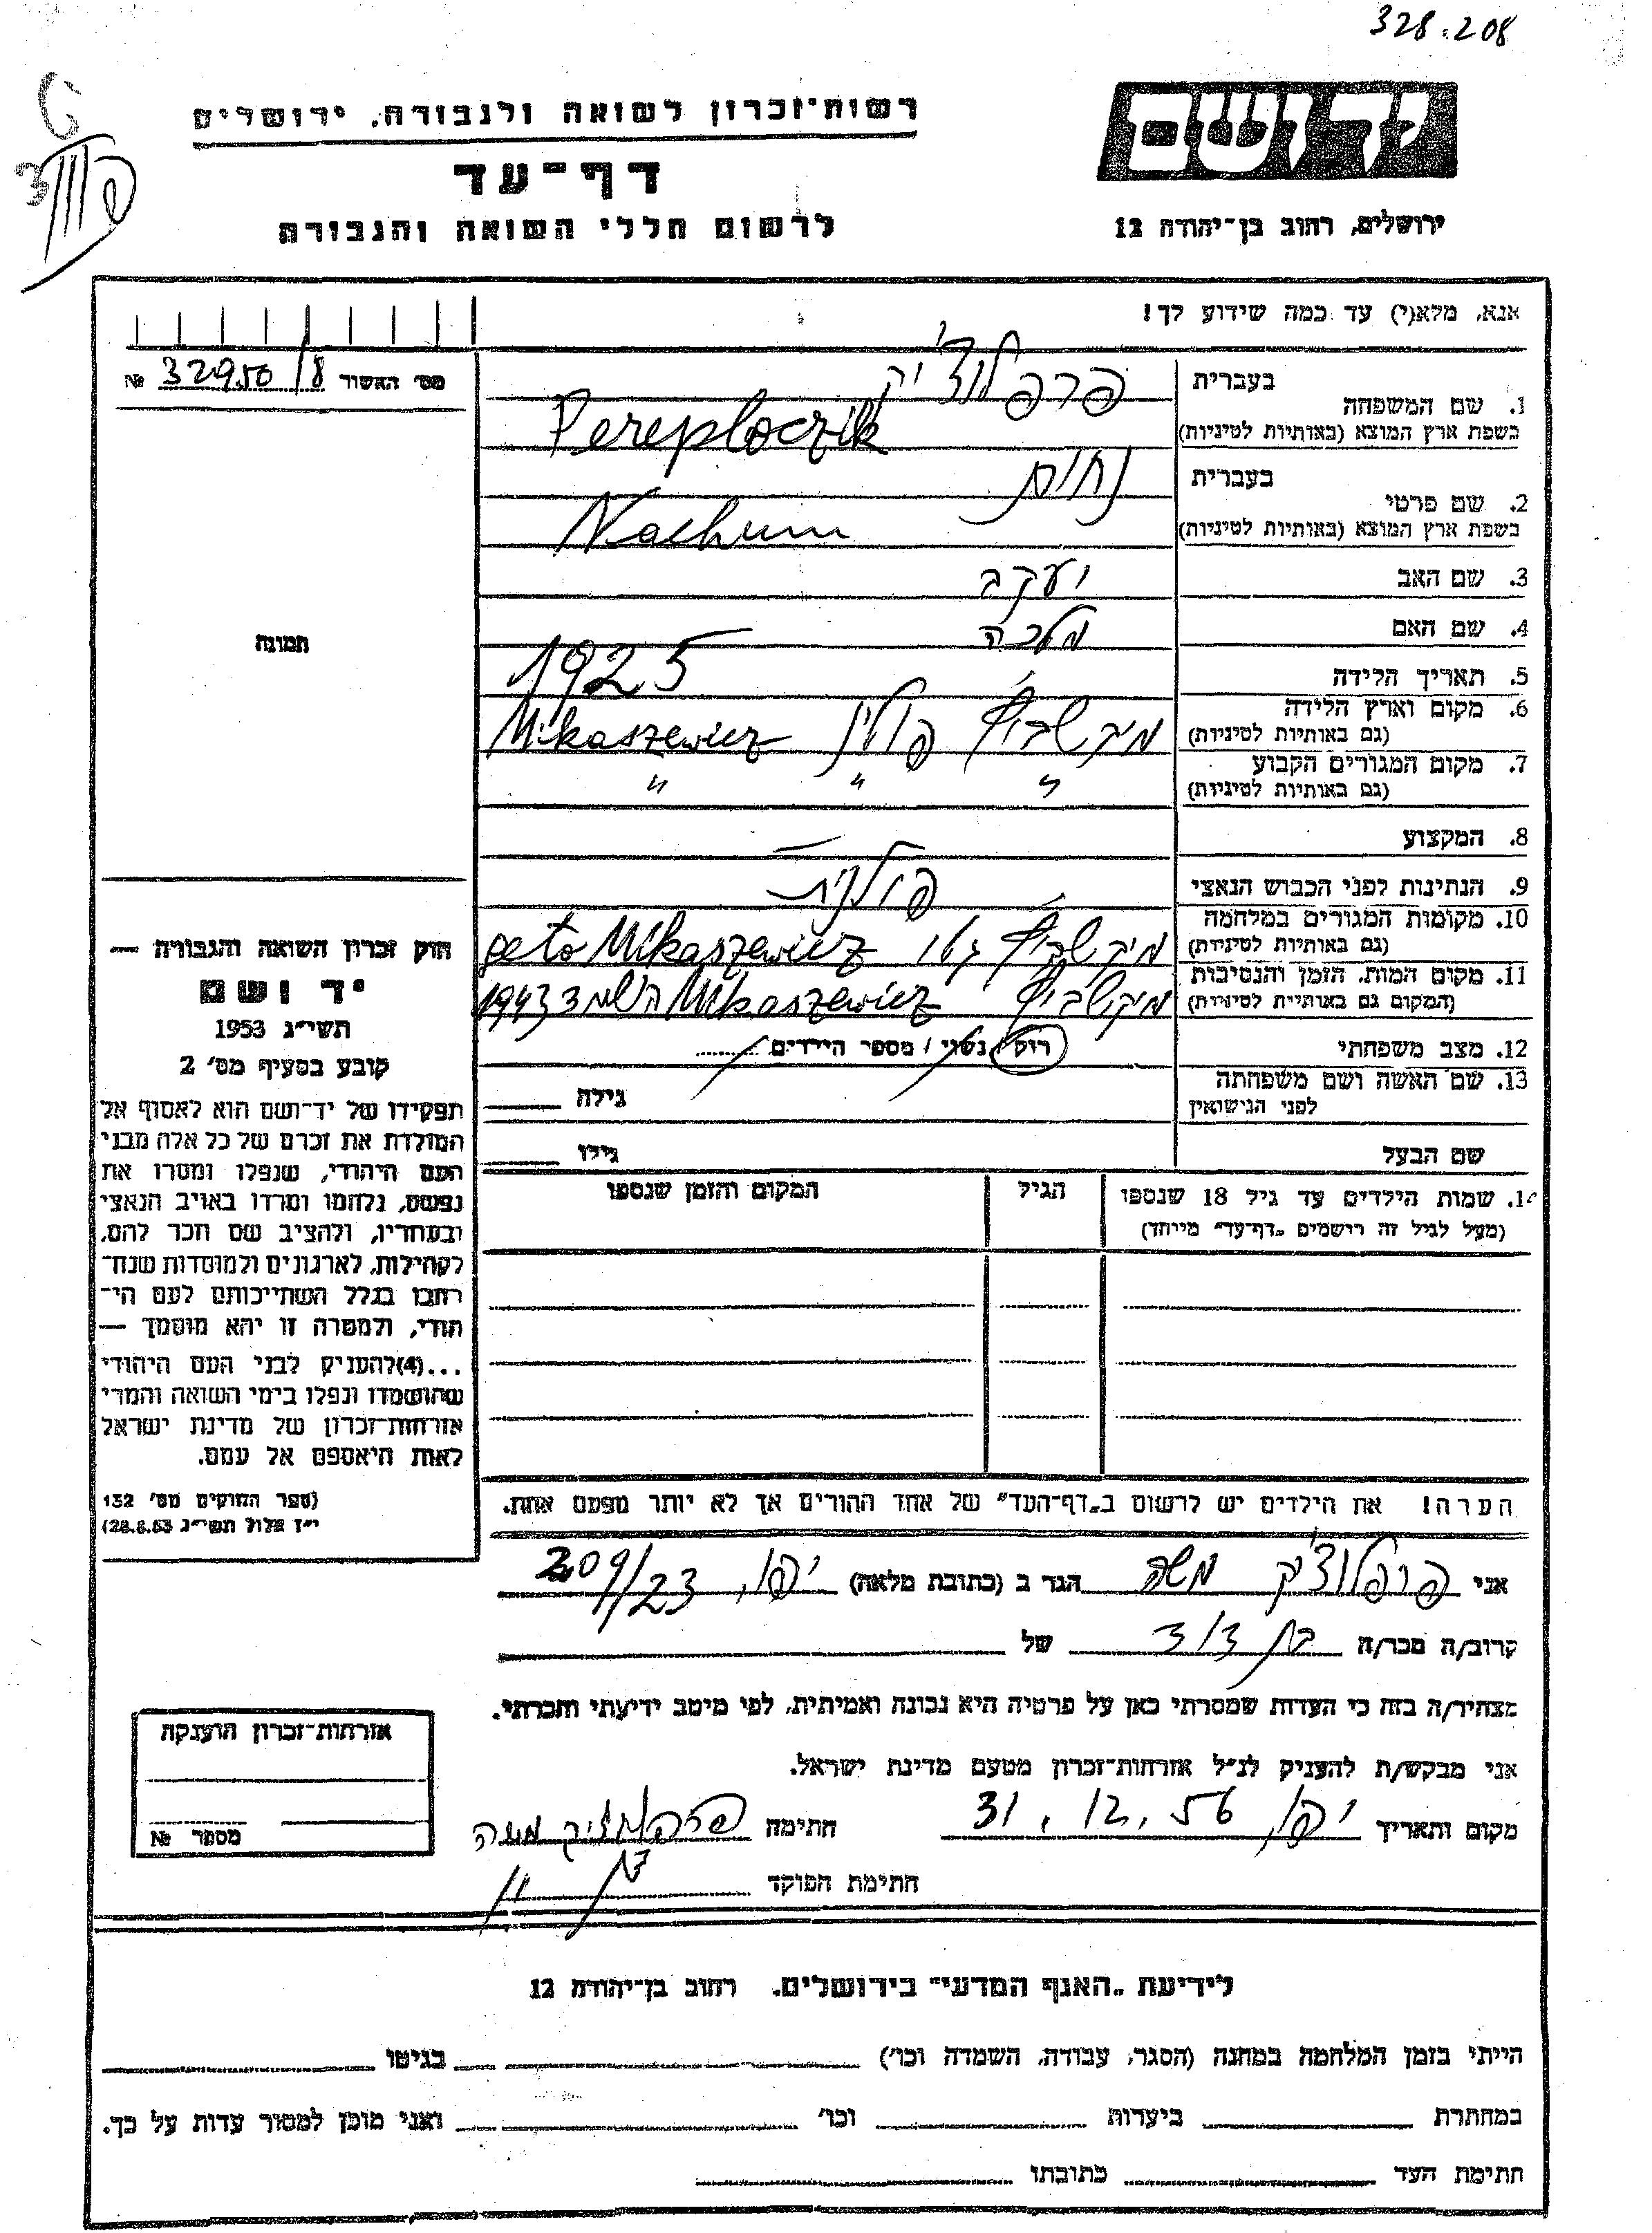 328.208
רשות־זכרון לשואה ולגבורה, ירושלים
יד ושם
דף־עד
לרשום חללי השואה והגבורה
ירושלים, רחוב בן־יהודה 12
אנא, מלא(י) עד כמה שידוע לך!
מס' האשור № 32950/8
1. שם המשפחה
בעברית פרפלוצ'יק
בשפת ארץ המוצא (באותיות לטיניות) Pereploczik
2. שם פרטי
בעברית נחום
בשפת ארץ המוצא (באותיות לטיניות) Nachum
3. שם האב יעקב
4. שם האם מלכה
תמונה
5. תאריך הלידה 1925
6. מקום וארץ הלידה (גם באותיות לטיניות) מיקשביץ' פולין Mikaszewicz
7. מקום המגורים הקבוע (גם באותיות לטיניות) " " "
8. המקצוע —
9. הנתינות לפני הכבוש הנאצי פולנית
10. מקומות המגורים במלחמה (גם באותיות לטיניות) מיקשביץ' גטו geto Mikaszewicz
11. מקום המות, הזמן והנסיבות (המקום גם באותיות לטיניות) מיקשביץ' Mikaszewicz 1943
12. מצב משפחתי רוק / נשוי / מספר הילדים
13. שם האשה ושם משפחתה לפני הנישואין גילה
שם הבעל גילו
14. שמות הילדים עד גיל 18 שנספו הגיל המקום והזמן שנספו
(מעל לגיל זה רושמים „דף־עד" מייוחד)
חוק זכרון השואה והגבורה —
יד ושם
תשי"ג 1953
קובע בסעיף מס' 2
תפקידו של יד־ושם הוא לאסוף אל
המולדת את זכרם של כל אלה מבני
העם היהודי, שנפלו ומסרו את
נפשם, נלחמו ומרדו באויב הנאצי
ובעוזריו, ולהציב שם וזכר להם,
לקהילות, לארגונים ולמוסדות שנח־
רבו בגלל השתייכותם לעם הי־
הודי, ולמטרה זו יהא מוסמך —
...(4) להעניק לבני העם היהודי
שהושמדו ונפלו בימי השואה והמרי
אזרחות־זכרון של מדינת ישראל
לאות היאספם אל עמם.
(ספר החוקים מס' 132
י"ז אלול תשי"ג 28.8.53)
הערה! את הילדים יש לרשום ב„דף־העד" של אחד ההורים אך לא יותר מפעם אחת.
אני פרפלוצ'יק משה הגר ב (כתובת מלאה) יפו, 209/23
קרוב/ה מכר/ה בן דוד של
מצהיר/ה בזה כי העדות שמסרתי כאן על פרטיה היא נכונה ואמיתית, לפי מיטב ידיעתי והכרתי.
אני מבקש/ת להעניק לנ"ל אזרחות־זכרון מטעם מדינת ישראל.
מקום ותאריך יפו, 31.12.56 חתימה פרפלוצ'יק משה
חתימת הפוקד
אזרחות־זכרון הוענקה
מספר №
לידיעת „האגף המדעי" בירושלים, רחוב בן־יהודה 12
הייתי בזמן המלחמה במחנה (הסגר, עבודה, השמדה וכו') בגיטו
במחתרת ביערות וכו' ואני מוכן למסור עדות על כך.
חתימת העד כתובתו